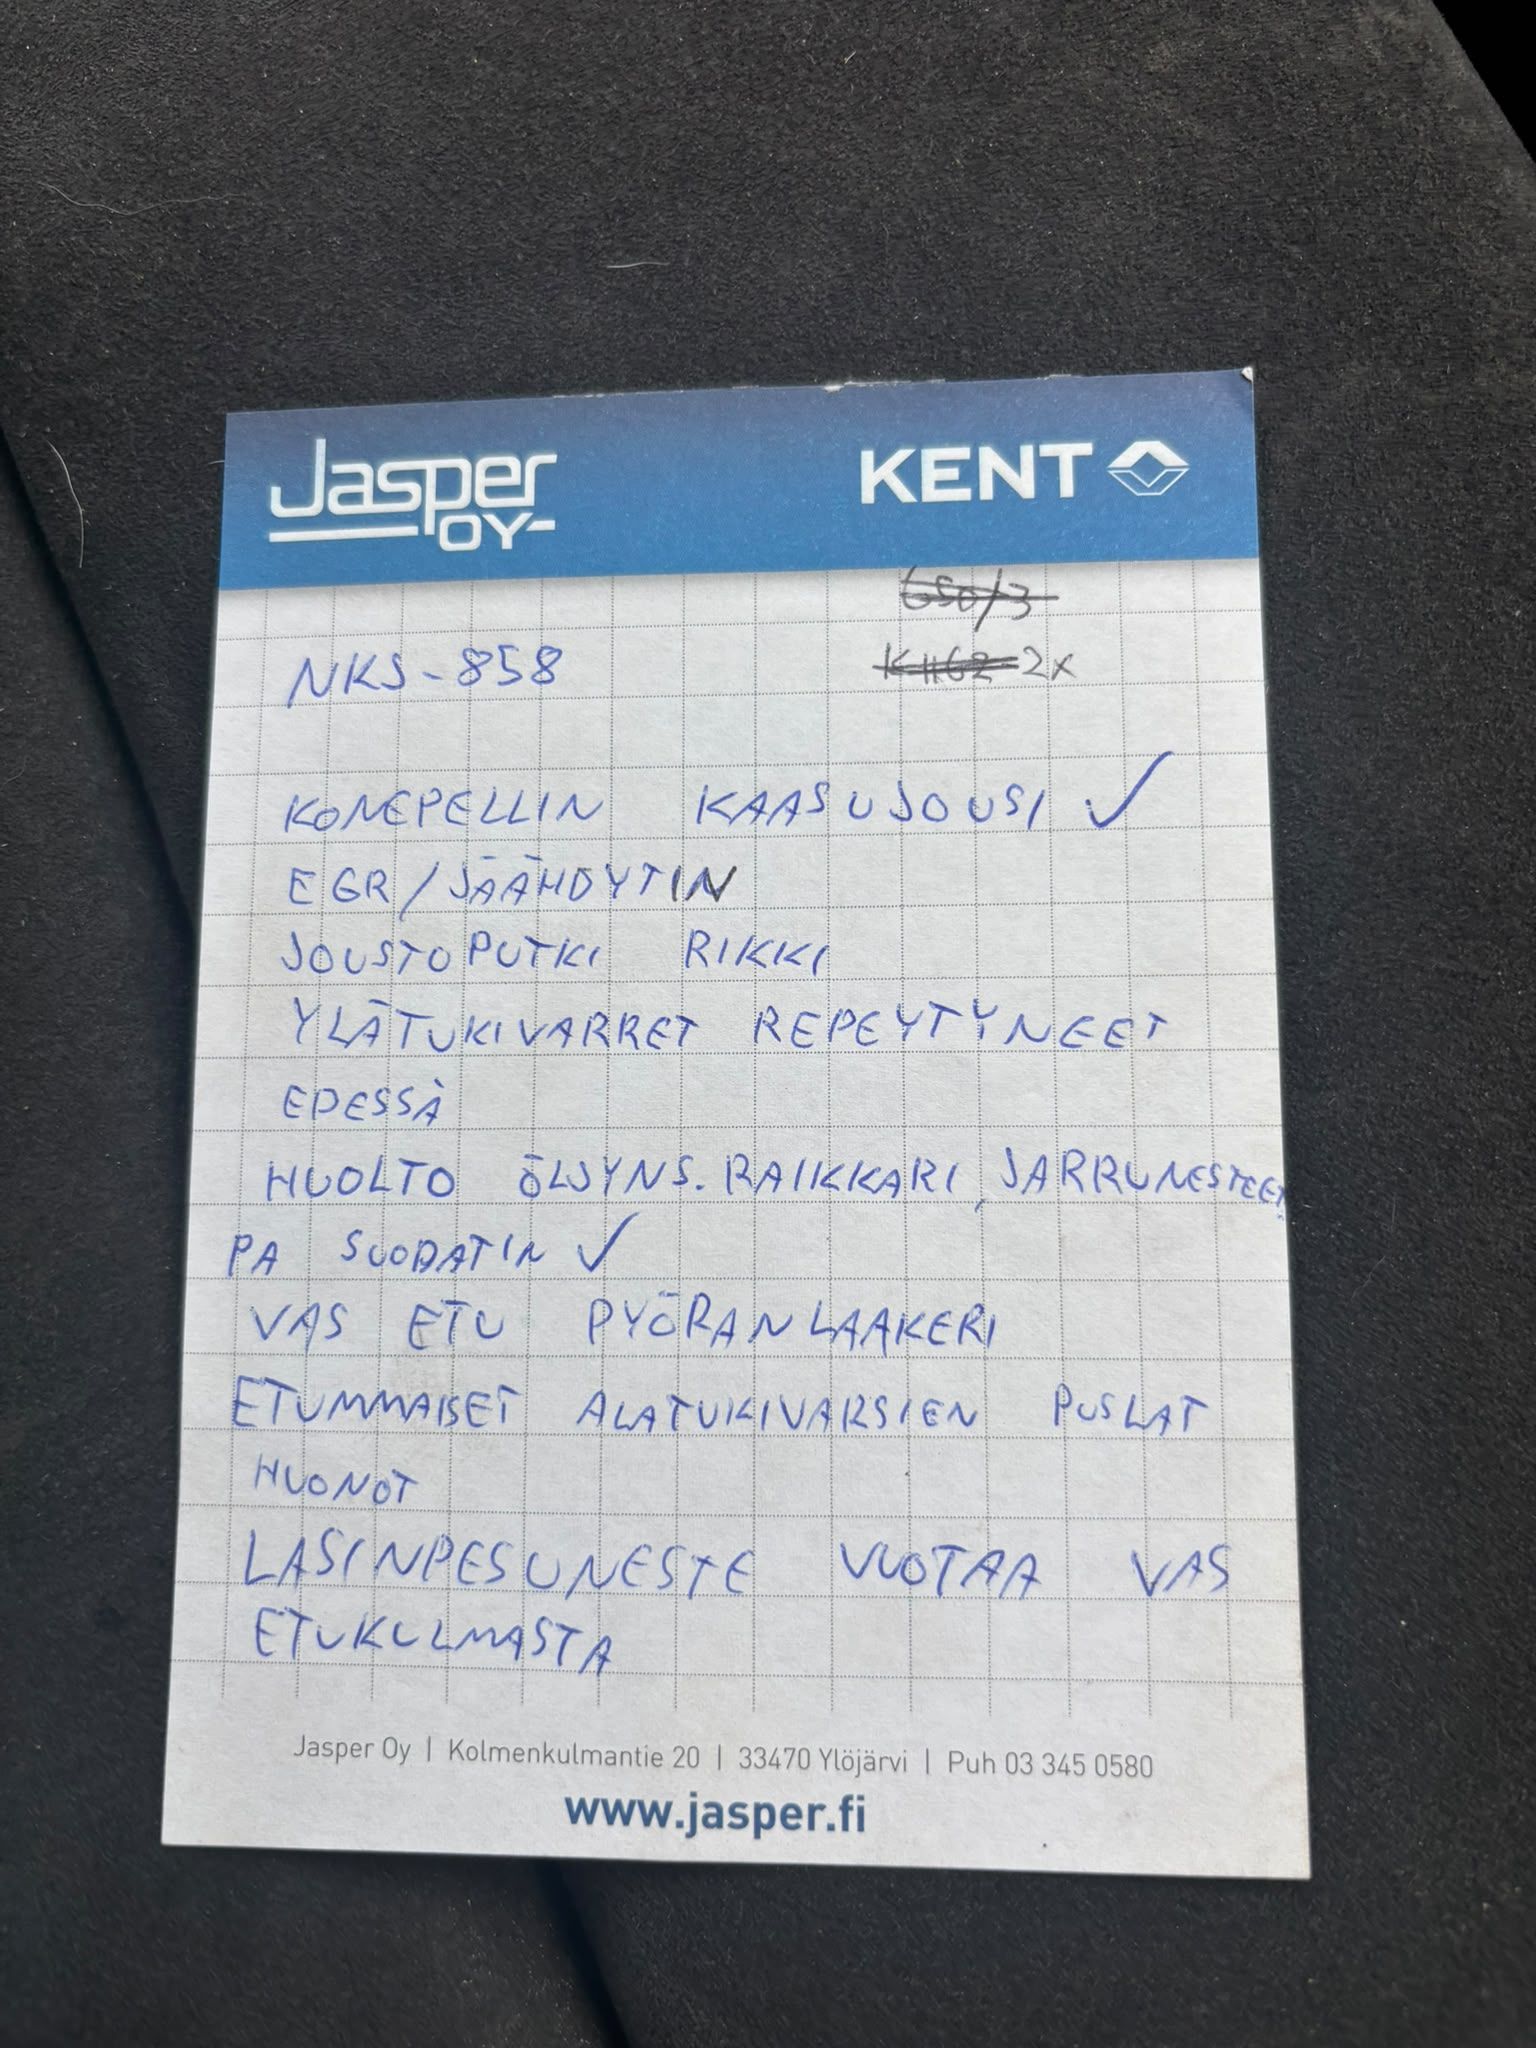 Jasper OY
KENT
650/3
NKS-858
K1162 2x
KONEPELLIN KAASUJOUSI ✓
EGR/JÄÄHDYTIN
JOUSTOPUTKI RIKKI
YLÄTUKIVARRET REPEYTYNEET
EDESSÄ
HUOLTO ÖLJYNS. RAIKKARI, JARRUNESTEET,
PA SUODATIN ✓
VAS ETU PYÖRANLAAKERI
ETUMMAISET ALATUKIVARSIEN PUSLAT
HUONOT
LASINPESUNESTE VUOTAA VAS
ETUKULMASTA
Jasper Oy | Kolmenkulmantie 20 | 33470 Ylöjärvi | Puh 03 345 0580
www.jasper.fi